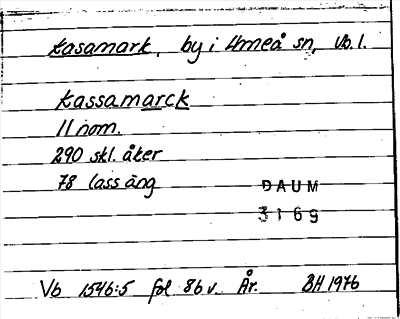 Kasamark, by i Umeå sn, Vb. l.
Kassamarck
11 nom.
290 skl. åker
78 lass äng
DAUM
3169
Vb 1546:5 fol 86 v. År. BH 1976